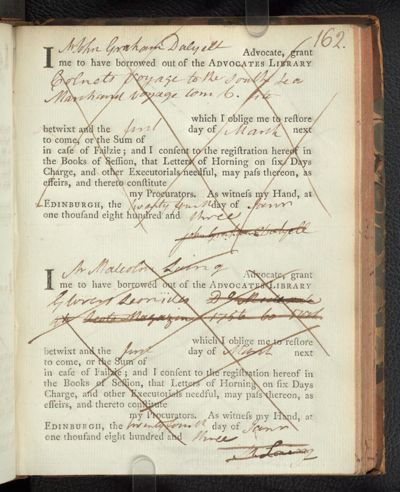 162.
I Mr John Graham Dalyell Advocate, grant
me to have borrowed out of the ADVOCATES LIBRARY
Colnets Voyage to the South Sea
Marchand Voyage tom 6.
which I oblige me to restore
betwixt and the first day of March next
to come, or the Sum of
in case of Failzie; and I consent to the registration hereof in
the Books of Session, that Letters of Horning on six Days
Charge, and other Executorials needful, may pass thereon, as
effeirs, and thereto constitute
my Procurators. As witness my Hand, at
EDINBURGH, the twenty fourth day of
one thousand eight hundred and three
John Graham Dalyell
I Mr Malcolm Laing Advocate, grant
me to have borrowed out of the ADVOCATES LIBRARY
Glovers Leonidas
Scots Magazine 1756 60
which I oblige me to restore
betwixt and the first day of March next
to come, or the Sum of
in case of Failzie; and I consent to the registration hereof in
the Books of Session, that Letters of Horning on six Days
Charge, and other Executorials needful, may pass thereon, as
effeirs, and thereto constitute
my Procurators. As witness my Hand, at
EDINBURGH, the twenty fourth day of
one thousand eight hundred and three
Laing